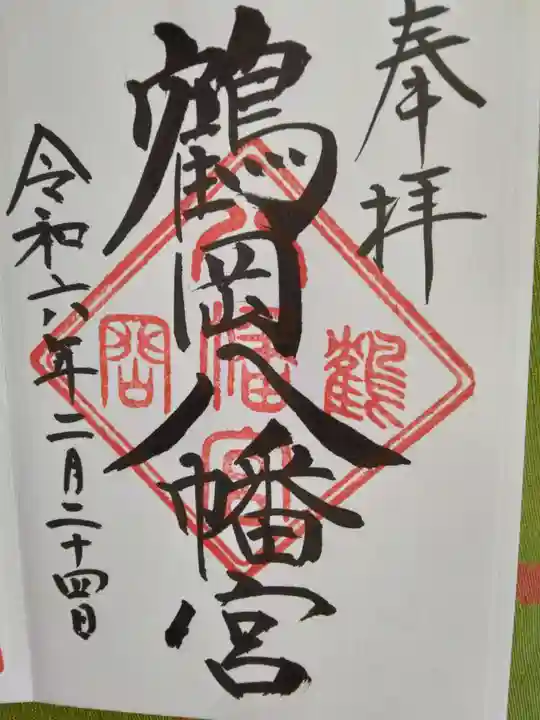 奉拝
鶴岡八幡宮
鶴岡八幡宮
令和六年二月二十四日